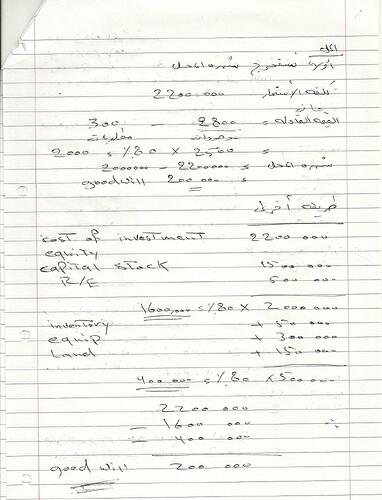 الحل
أولاً نستخرج شهرة المحل
تكلفة الاستثمار 2200000
القيمة العادلة = 2800 - 300
موجودات مطلوبات
= 2500 × 80% = 2000
شهرة المحل = 2200000 - 2000000
= 200000 good will
طريقة أخرى
cost of investment 2200 000
equity
capital stock 1500 000
R/E 500 000
2000 000 × 80% = 1600,000
inventory + 50 000
equip + 300 000
Land + 150 000
500 000 × 80% = 400 000
2200 000
- 1600 000
- 400 000
good will 200 000